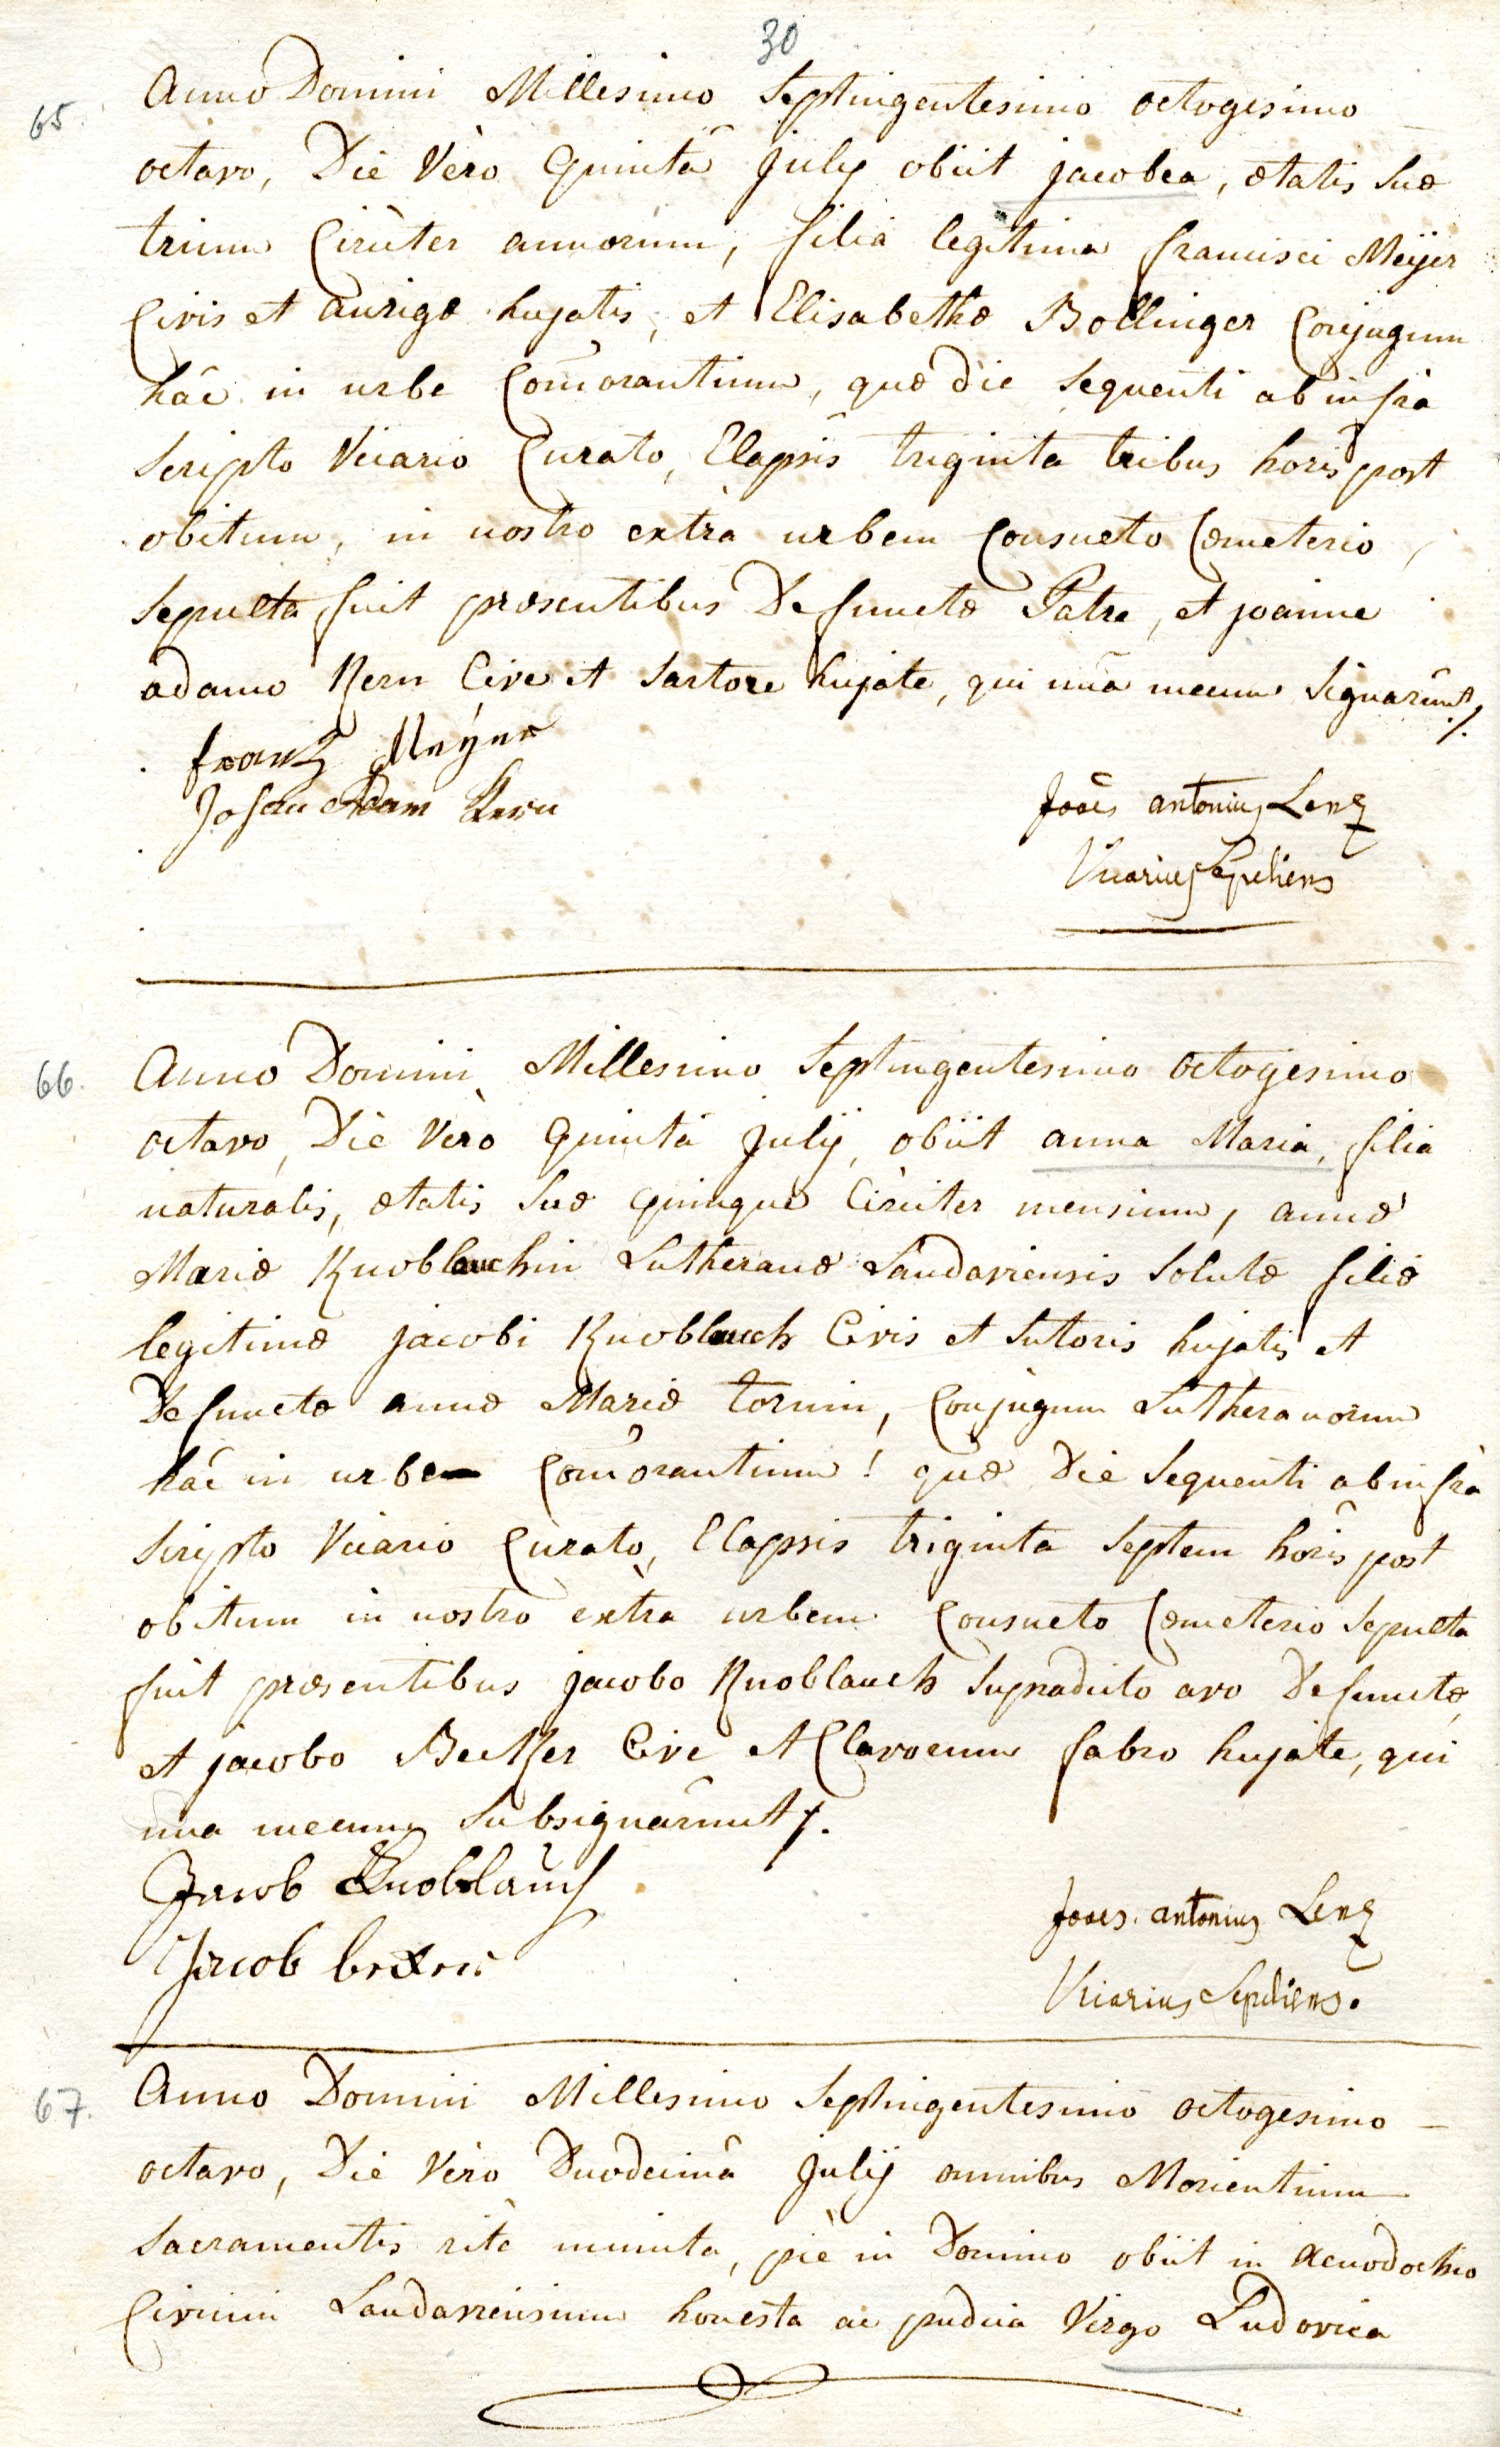 30
65.
Anno Domini Millesimo Septingentesimo octogesimo
octavo, Die Verò Quintâ july obiit jacobea, ætatis suæ
trium Circiter annorum, filia legitima francisci Meÿer
Civis et aurigæ hujatis, et Elisabethæ Bollinger Conjugum
hâc in urbe Com̃orantium, quæ die sequenti ab infrà
scripto Vicario Curato, Elapsis triginta tribus horis post
obitum, in nostro extrà urbem Consueto Cœmeterio,
sepulta fuit præsentibus Defunctæ Patre, et joanne
adamo Kern Cive et Sartore hujate, qui unâ mecum signarûnt ⁒.
frantz Meÿer
Johan Adam Kern
Joães antonius Lenz
Vicarius Sepeliens
66.
Anno Domini Millesimo Septingentesimo octogesimo
octavo, Die Verò Quintâ julij, obiit anna Maria, filia
naturalis, ætatis suæ quinque Circiter mensium, annæ
Mariæ Knoblauchin Lutheranæ Landaviensis solutæ filiæ
legitimæ jacobi Knoblauch Civis et sutoris hujatis et
Defunctæ annæ Mariæ tornin, Conjugum Lutheranorum
hâc in urbe Com̃orantium! quæ Die sequenti ab infrà
scripto Vicario Curato, Elapsis triginta septem horis post
obitum in nostro extra urbem Consueto Cœmeterio sepulta
fuit præsentibus jacobo Knoblauch supradicto avo Defunctæ,
et jacobo Becker Cive et Clavorum fabro hujate, qui
una mecum subsignarunt ⁒.
Jacob Knoblauch
Jacob
Joães antonius Lenz
Vicarius Sepeliens.
67.
Anno Domini Millesimo Septingentesimo octogesimo
octavo, Die Vero Duodecimâ julij omnibus Morientium
Sacramentis ritè munita, piè in Domino obiit in Xenodochio
Civium Landaviensium honesta ac pudica Virgo Ludovica